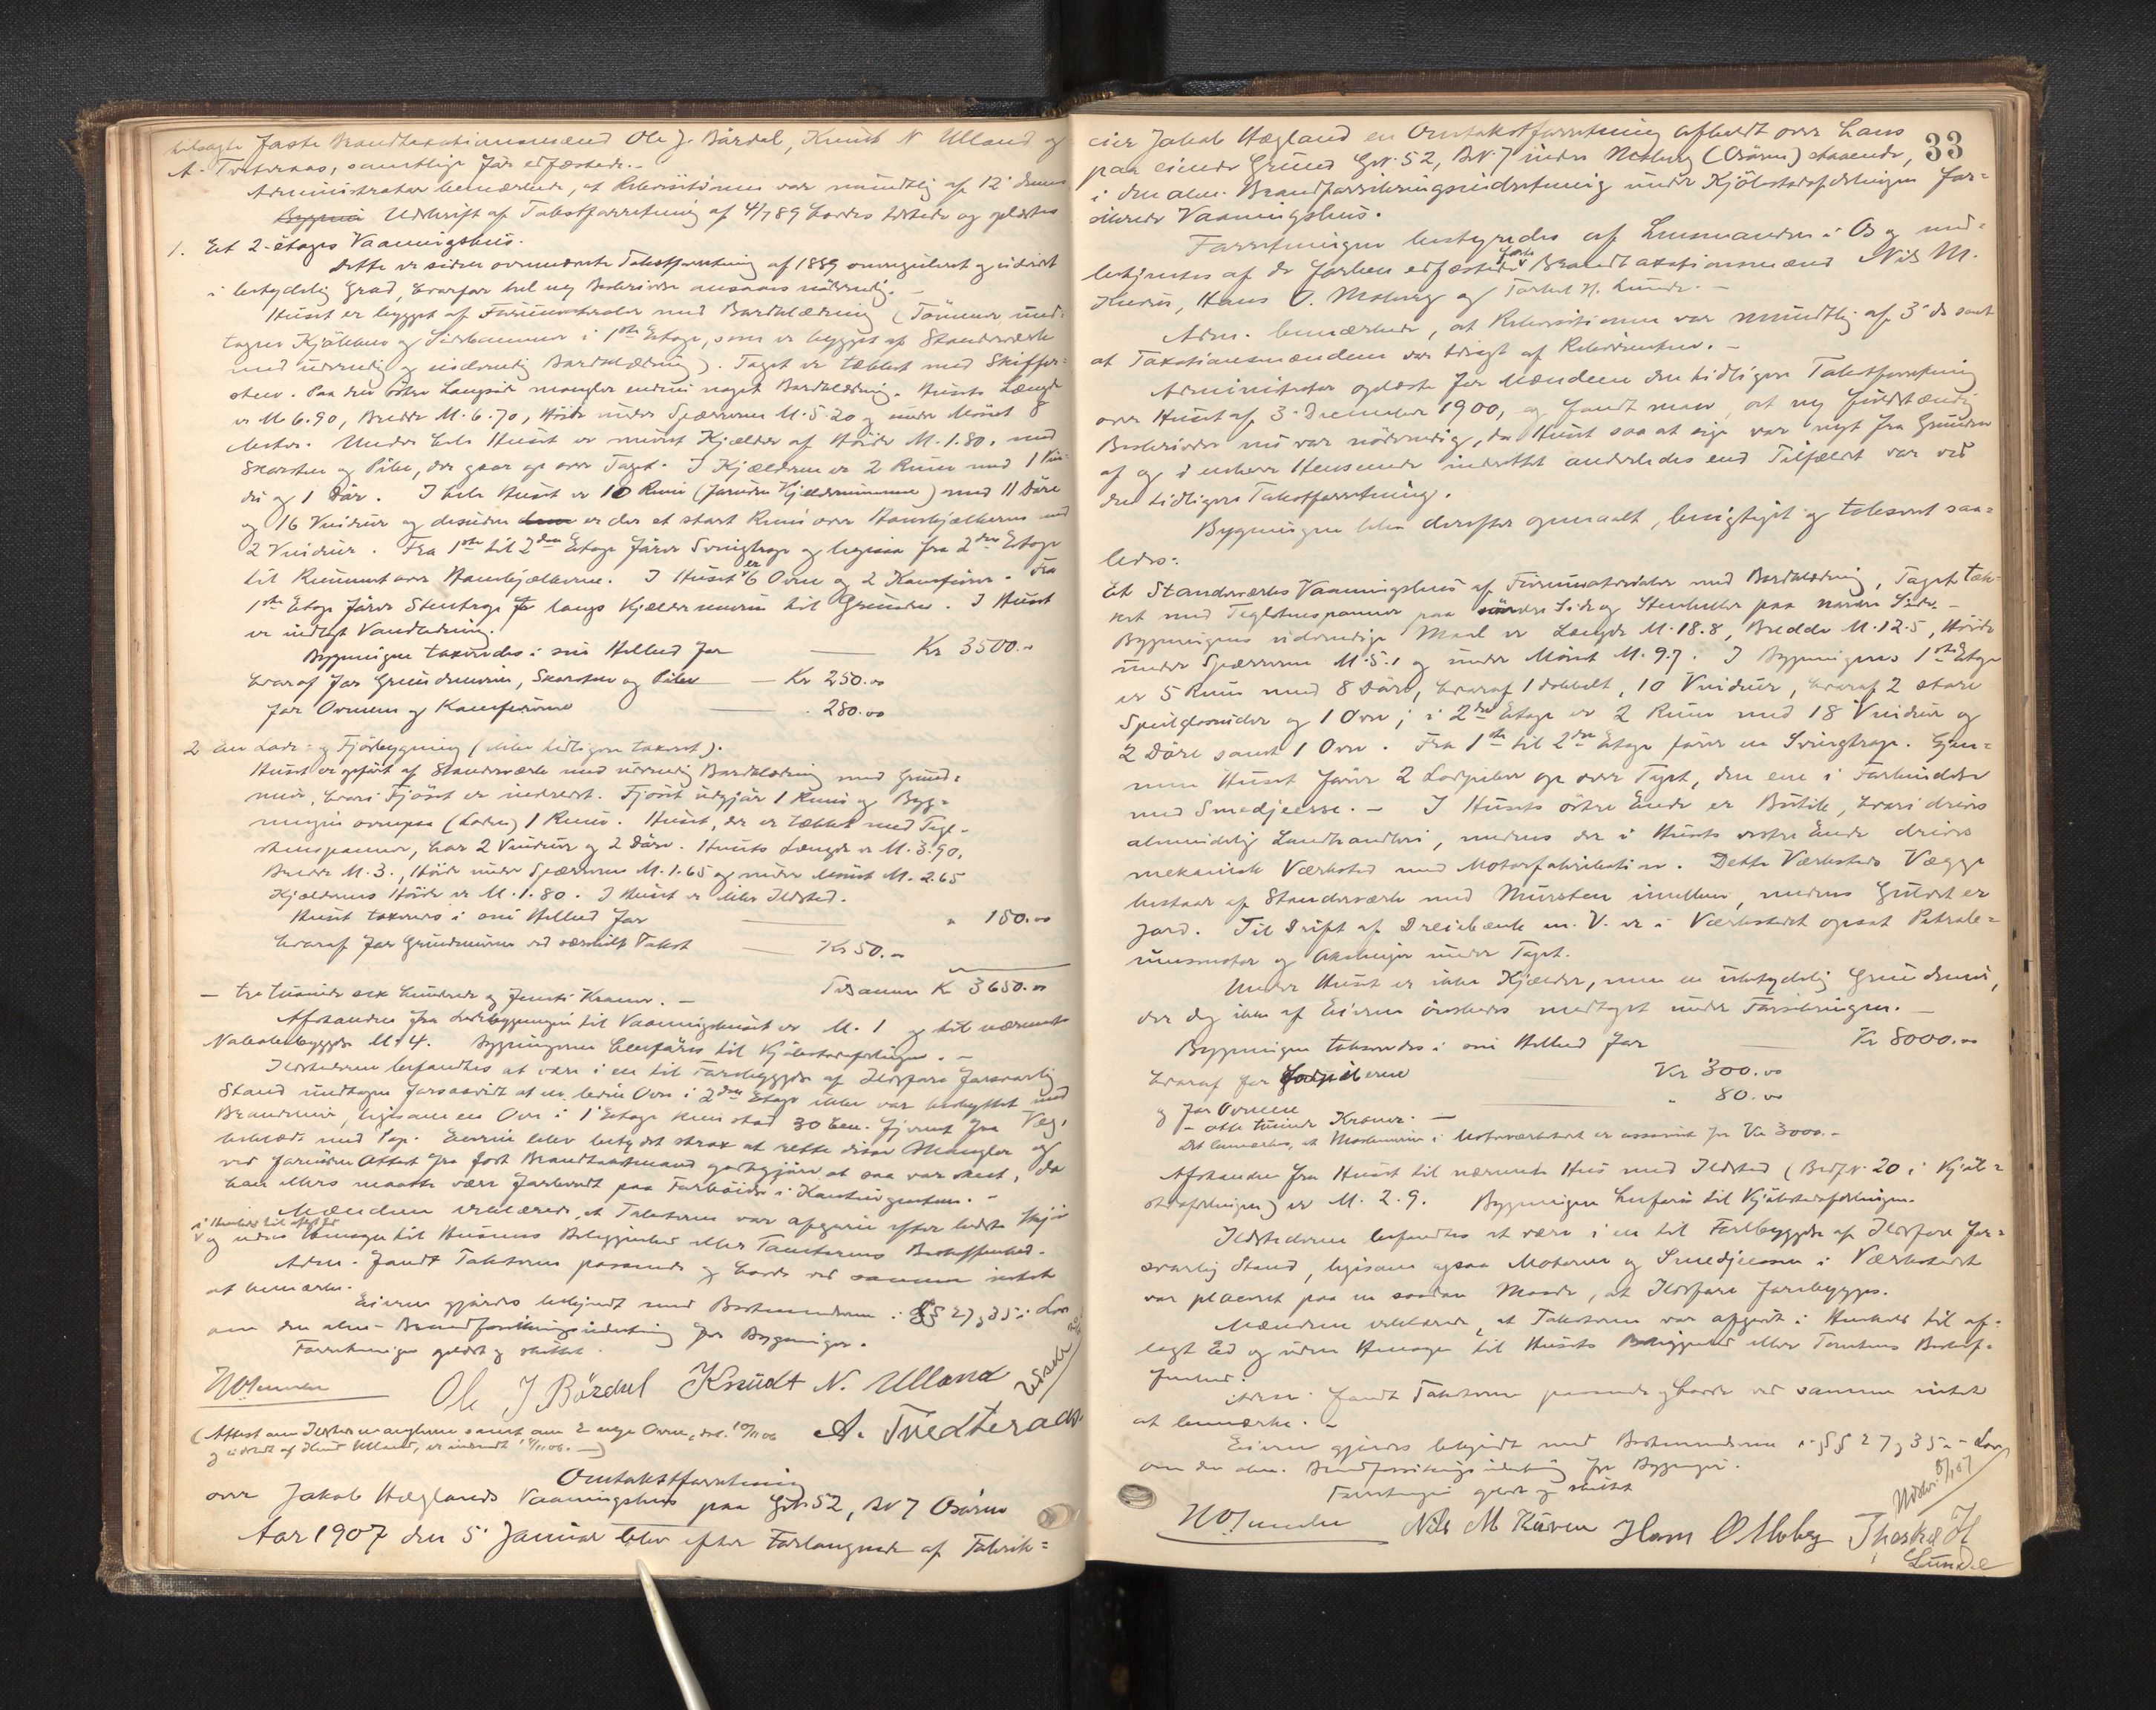 tilsagte faste Brandtaxationsmænd Ole J. Bárdal, Knut N. Ulland og
A. Tveteraas, samtlige før edfæstede.-
Administrator bemærkede, at Rekvisitionen var mundtlig af 12' dennes
Udskrift af Takstforretning af 4/7 89 havdes tilstede og oplæstes
1. Et 2-etages Vaaningshus.
Dette er siden ovennævnte Takstforretning af 1889 omreguleret og udvidet
i betydelig Grad, hvorfor hel ny Beskrivelse ansaaes nødvendig. -
Huset er bygget af Furumaterialer med Bordklædning (Tømmer und-
tagen Kjøkken og Sidekammer i 1ste Etage, som er bygget af Standerværk
med udvendig og indvendig Bordklædning). Taget er tækket med Skiffer-
sten. Paa den østre Langside mangler endnu noget Bordklædning. Husets Længde
er M 6.90, Bredde M. 6.70, Høide under Spærrerne M. 5.20 og under Mønet 8
Meter. Under hele Huset er muret Kjælder af Høide M. 1.80. med
Skorsten og Pibe, der gaar op over Taget. I Kjælderen er 2 Rum med 1 Vin-
du og 1 Dør. I hele Huset er 10 Rum (foruden Kjælderrummene) med 11 Døre
og 16 Vinduer og desuden er der et stort Rum over Hanebjælkerne med
2 Vinduer. Fra 1ste til 2den Etage fører Svingtrap og ligesaa fra 2den Etage
til Rummet over Hanebjælkerne. I Huset er 6 Ovne og 2 Komfurer. Fra
1ste Etage fører Stentrap langs Kjældermuren til Grunden. I Huset
er indlagt Vandledning.
Bygningen taxeredes i sin Helhed for Kr 3500.-
hvoraf for Grundmuren, Skorsten og Piben - Kr 250.00
for Ovnene og Komfurerne 280.00
2 En Lade- og Fjøsbygning (ikke tidligere taxeret).
Huset er opført af Standerværk med udvendig Bordklædning med Grund-
mur, hvori Fjøset er indredet. Fjøset udgjør 1 Rum og Byg-
ningen ovenpaa (Laden) 1 Rum. Huset, der er tækket med Tegl-
stenspanner, har 2 Vinduer og 2 Døre. Husets Længde er M. 3.90,
Bredde M. 3., Høide under Spærrerne M. 1.65 og under Mønet M. 2.65
Kjælderens Høide er M. 1.80. I Huset er ikke Ildsted.
Huset taxeres i sin Helhed for " 150.00
hvoraf for Grundmuren ved særskilt Takst Kr 50.-
Tilsammen Kr 3650.00
- tre tusinde sex hundrede og femti Kroner. -
Afstanden fra Ladebygningen til Vaaningshuset er M. 1 og til nærmeste
Nabobebyggelse M. 4. Bygningerne henføres til Kjøbstadafdelingen. -
Ildstederne befandtes at være i en til Forebyggelse af Ildsfare forsvarlig
Stand undtagen forsaavidt at en liden Ovn i 2den Etage ikke var beskyttet med
Brandmur, ligesom en Ovn i 1' Etage kun stod 30 Ctm. fjernet fra Væg,
beklædt med Pap. Eieren blev betydet strax at rette disse Mangler og
ved fornøden Attest fra fast Brandtaxtmand godtgjøre at saa var skeet, da
han ellers maatte være forberedt paa Forhøielse i Kontingenten. -
Mændene erklærede at Taksterne var afgivne efter bedste Skjøn
i Henhold til aflagt Ed
og uden Hensyn til Husenes Beliggenhed eller Tomternes Beskaffenhed.
Adm. fandt Taksterne passende og havde ved samme intet
at bemærke.
Eieren gjordes bekjendt med Bestemmelserne i §§ 27, 35 i Lov
om den alm. Brandforsikringsindretning for Bygninger.
Forretningen oplæst og sluttet.
Ole J Bårdal Knudt N. Ulland
A. Tvedteraas
(Attest om Ildstedsmanglerne samt om 2 nye Ovne, dat. 10/11 06
og udstedt af Knud Ulland, er indsendt /11 06. -)
Omtakstforretning
over Jakob Hæglands Vaaningshus paa Gr.52, Bn 7 Osøren
Aar 1907 den 5' Januar blev efter Forlangende af Fabrik-
33
eier Jakob Hægland en Omtakstforretning afholdt over hans
paa eiende Grund Gn. 52, Bn. 7 under Moberg (Osøren) staaende,
i den alm. Brandforsikringsindretning under Kjøbstadafdelingen for-
sikrede Vaaningshus.
Forretningen bestyredes af Lensmanden i Os og med-
betjentes af de forhen edfæstede faste Brandtaxationsmænd Nils M.
Kuven, Hans O. Moberg og Torkel H. Lunde. -
Adm. bemærkede, at Rekvisitionen var mundtlig af 3' ds samt
at Taxationsmændene var tilsagt af Rekvirenten. -
Administrator oplæste for Mændene den tidligere Takstforretning
over Huset af 3' December 1900, og fandt man, at ny fuldstændig
Beskrivelse nu var nødvendig, da Huset saa at sige var nyt fra Grunden
af og i enhver Henseende indrettet anderledes end Tilfældet var ved
den tidligere Takstforretning.
Bygningen blev derefter opmaalt, besigtiget og takseret saa-
ledes:
Et Standerværks Vaaningshus af Furumaterialer med Bordklædning, Taget tæk-
ket med Teglstenspanner paa søndre Side og Stenheller paa nordre Side. -
Bygningens udvendige Maal er Længde M. 18.8, Bredde M. 12.5, Høide
under Spærrerne M. 5.1 og under Mønet M. 9.7. I Bygningens 1ste Etage
er 5 Rum med 8 Døre, hvoraf 1 dobbelt, 10 Vinduer, hvoraf 2 store
Speilglasruder og 1 Ovn; i 2den Etage er 2 Rum med 18 Vinduer og
2 Døre samt 1 Ovn. Fra 1ste til 2den Etage fører en Svingtrap. Gjen-
nem Huset fører 2 Lodpiber op over Taget, den ene i Forbindelse
med Smedjeesse. - I Husets østre Ende er Butik, hvori drives
almindelig Landhandleri, medens der i Husets vestre Ende drives
mekanisk Værksted med Motorfabrikation. Dette Værksteds Vægge
bestaar af Standerværk med Mursten imellem, medens Gulvet er
Jord. Til Drift af Dreiebænk m. V. er i Værkstedet opsat Petrole-
umsmotor og Akslinger under Taget.
Under Huset er ikke Kjælder, men en ubetydelig Grundmur,
der dog ikke af Eieren ønskedes medtaget under Forsikringen. -
Bygningen takseredes i sin Helhed for Kr 8000.00
hvoraf for Lodpiberne Kr 300.00
og for Ovnene " 80.00
- otte tusinde Kroner. -
Det bemærkes, at Maskineriet i Motorværkstedet er assureret for Kr 3000.-
Afstanden fra Huset til nærmeste Hus med Ildsted (Bn. 20 i Kjøb-
stadafdelingen) er M. 2.9. Bygningen henføres til Kjøbstadafdelingen.
Ildstederne befandtes at være i en til Forebyggelse af Ildsfare for-
svarlig Stand, ligesom ogsaa Motoren og Smedjeessen i Værkstedet
var placeret paa en saadan Maade, at Ildsfare forebygges.
Mændene erklærede, at Taksterne var afgivet i Henhold til af-
lagt Ed og uden Hensyn til Husets Beliggenhed eller Tomtens Beskaf-
fenhed.
Adm. fandt Taksterne passende og havde ved samme intet
at bemærke. -
Eieren gjordes bekjendt med Bestemmelserne i §§ 27, 35 i Lov
om den alm. Brandforsikringsindretning for Bygninger.
Forretningen oplæst og sluttet
Nils M Kuven Hans O Moberg Thorkel H
Lunde